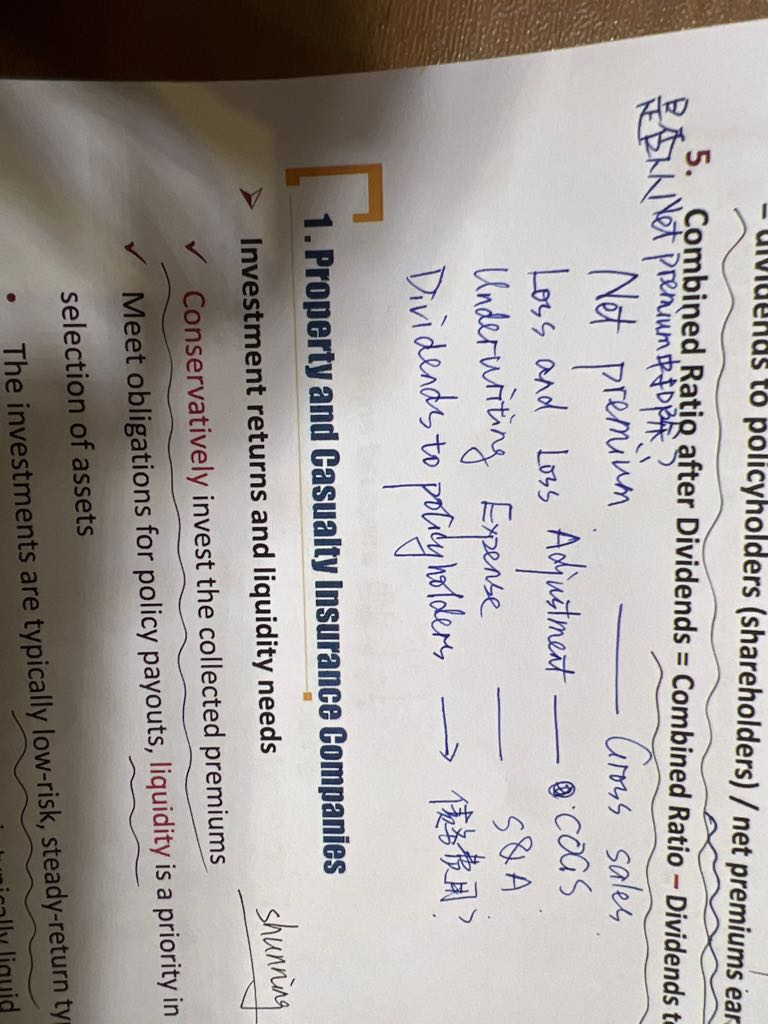 dividends to policyholders (shareholders) / net premiums ear
5. Combined Ratio after Dividends = Combined Ratio – Dividends t
是否从Net premium中扣除?
Net premium —— Gross sales
Loss and Loss Adjustment —— COGS
Underwriting Expense —— S&A
Dividends to policyholders → 债务费用?
1. Property and Casualty Insurance Companies
➢ Investment returns and liquidity needs
✓ Conservatively invest the collected premiums
shunning
✓ Meet obligations for policy payouts, liquidity is a priority in
selection of assets
• The investments are typically low-risk, steady-return ty